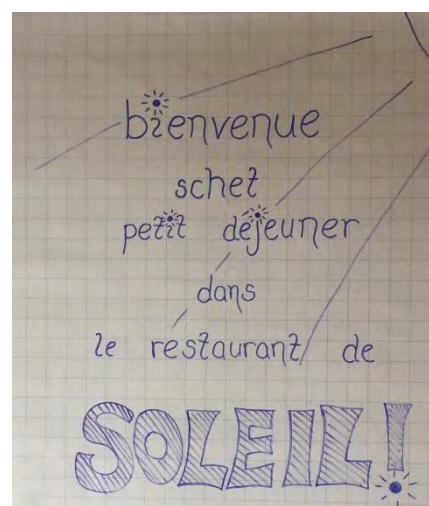 bienvenue
schet
petit déjeuner
dans
le restaurant de
SOLEIL!